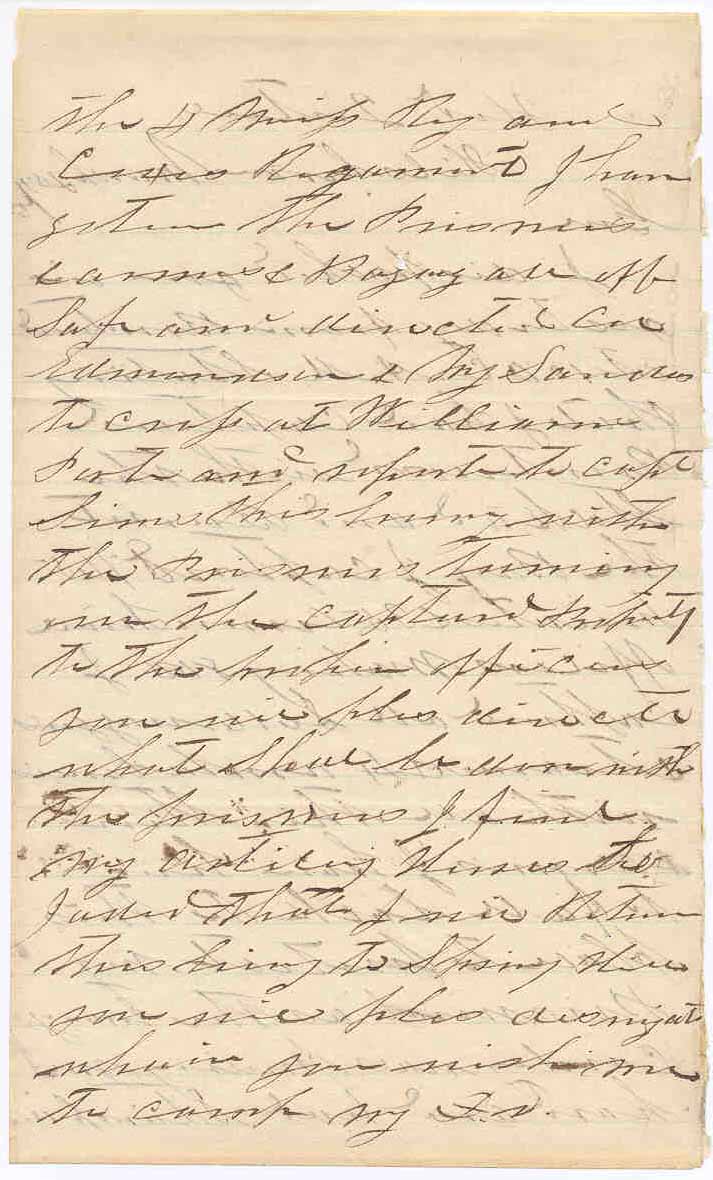 the 4 Miss Reg and
Cones Regament I have
goten the Prisoners
& armes & Bagag all off
Safe and directed Col
Edmondson & My Sandes
to cross at William
Porte and reporte to Capt
Sims this evnig with
the Prisoners turning
over the captured Property
to the proper officers
you will ples directe
what Shal be don with
the prisoners I find
my artilery Horses So
Jaded that I will Return
this evnig to Spring Hill
you will ples desnigat
whair you wish me
to camp my